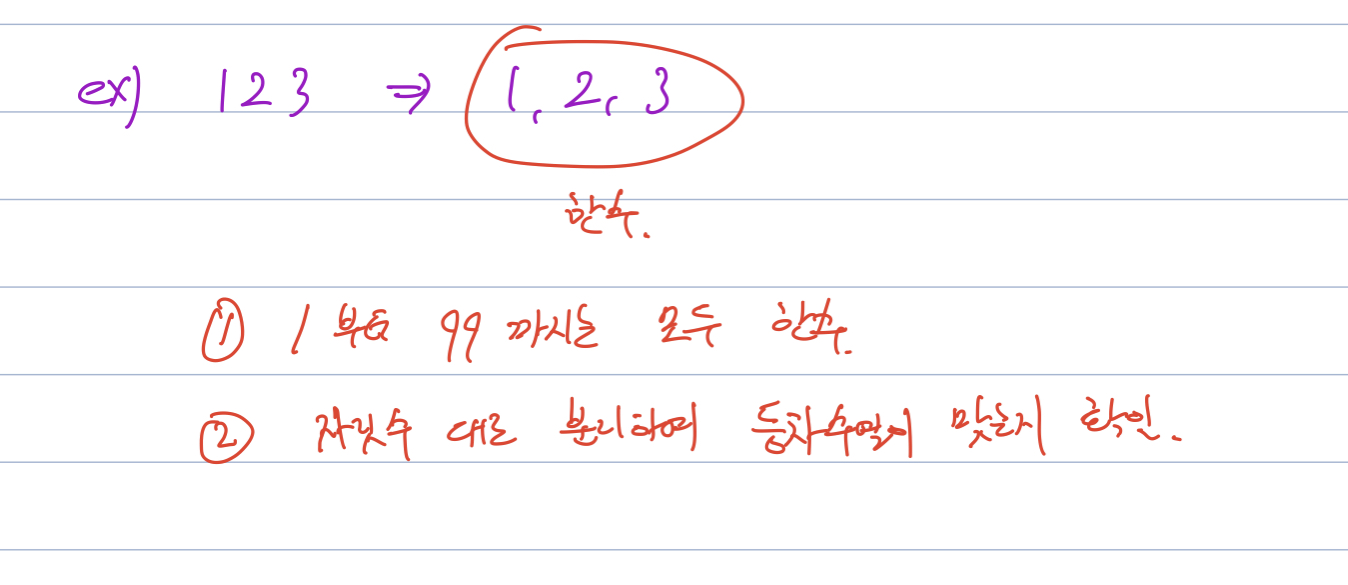 ex) 123 ⇒ 1, 2, 3
한수.
① 1부터 99 까지는 모두 한수.
② 자릿수 대로 분리하여 등차수열이 맞는지 확인.